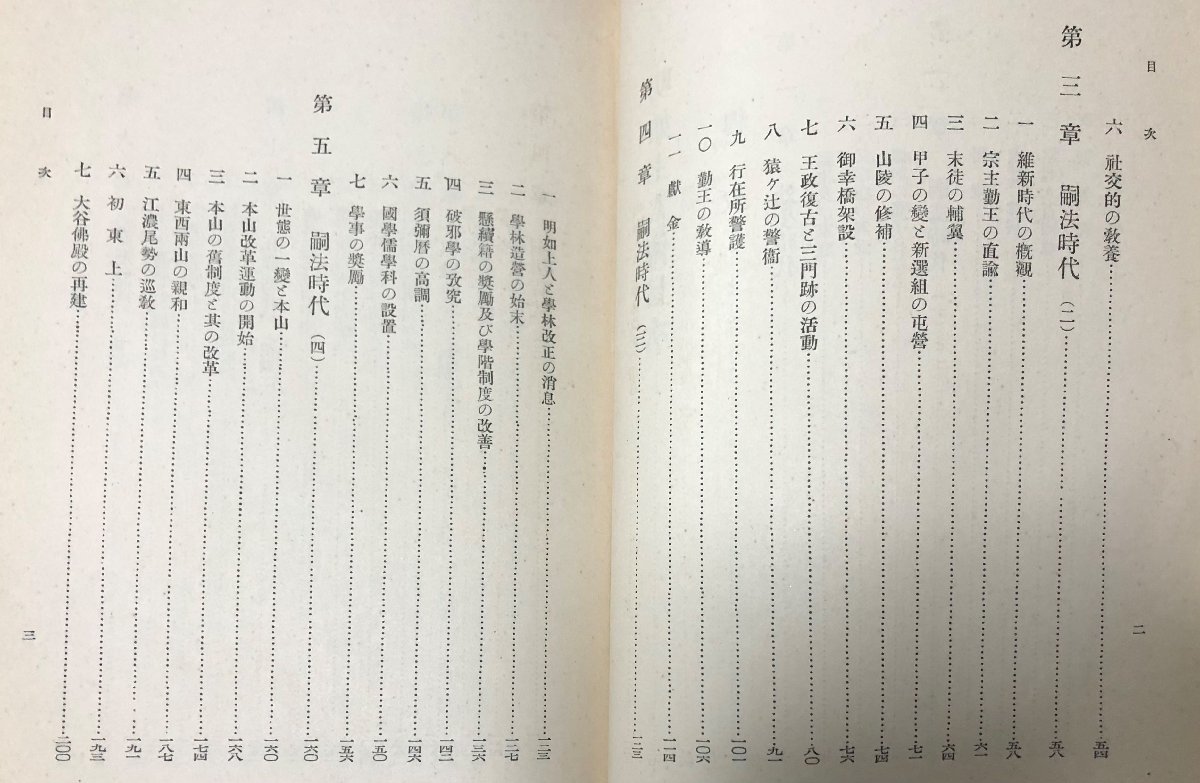 目次
六 社交的の敎養……五四
第三章 嗣法時代(二)……五八
一 維新時代の槪觀……五八
二 宗主勤王の直諭……六一
三 末徒の輔翼……六四
四 甲子の變と新選組の屯營……七一
五 山陵の修補……七四
六 御幸橋架設……七六
七 王政復古と三門跡の活動……八〇
八 猿ヶ辻の警衞……九一
九 行在所警護……一〇一
一〇 勤王の敎導……一〇六
一一 獻金……一一四
第四章 嗣法時代(三)……一二三
二
一 明如上人と學林改正の消息……一二三
二 學林造營の始末……一二七
三 懸續籍の奬勵及び學階制度の改善……一三六
四 破邪學の攷究……一四二
五 須彌曆の高調……一四六
六 國學儒學科の設置……一五〇
七 學事の奬勵……一五六
第五章 嗣法時代(四)……一六〇
一 世態の一變と本山……一六〇
二 本山改革運動の開始……一六八
三 本山の舊制度と其の改革……一七四
四 東西兩山の親和……一八七
五 江濃尾勢の巡敎……一九一
六 初東上……一九三
七 大谷佛殿の再建……二〇〇
目次
三